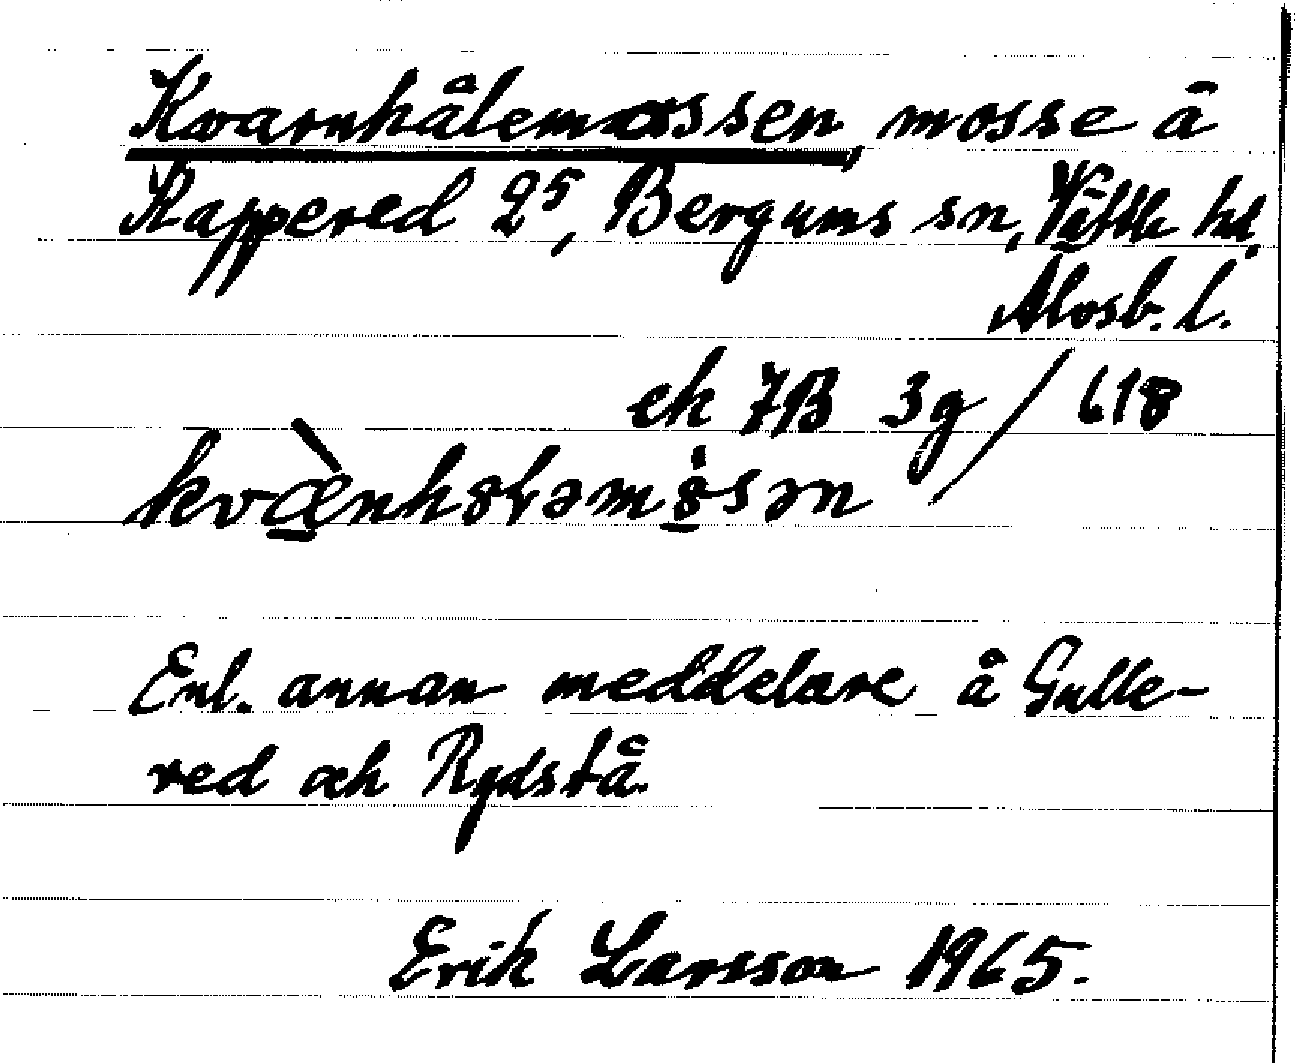 Kvarnhålemossen, mosse å
Rappered 2⁵, Bergums sn, Vättle hd,
Älvsb. l.
ek 7B 3g / 618
kvæ̀nhol̥əmósən
Enl. annan meddelare å Gulle-
red och Rydstå.
Erik Larsson 1965.